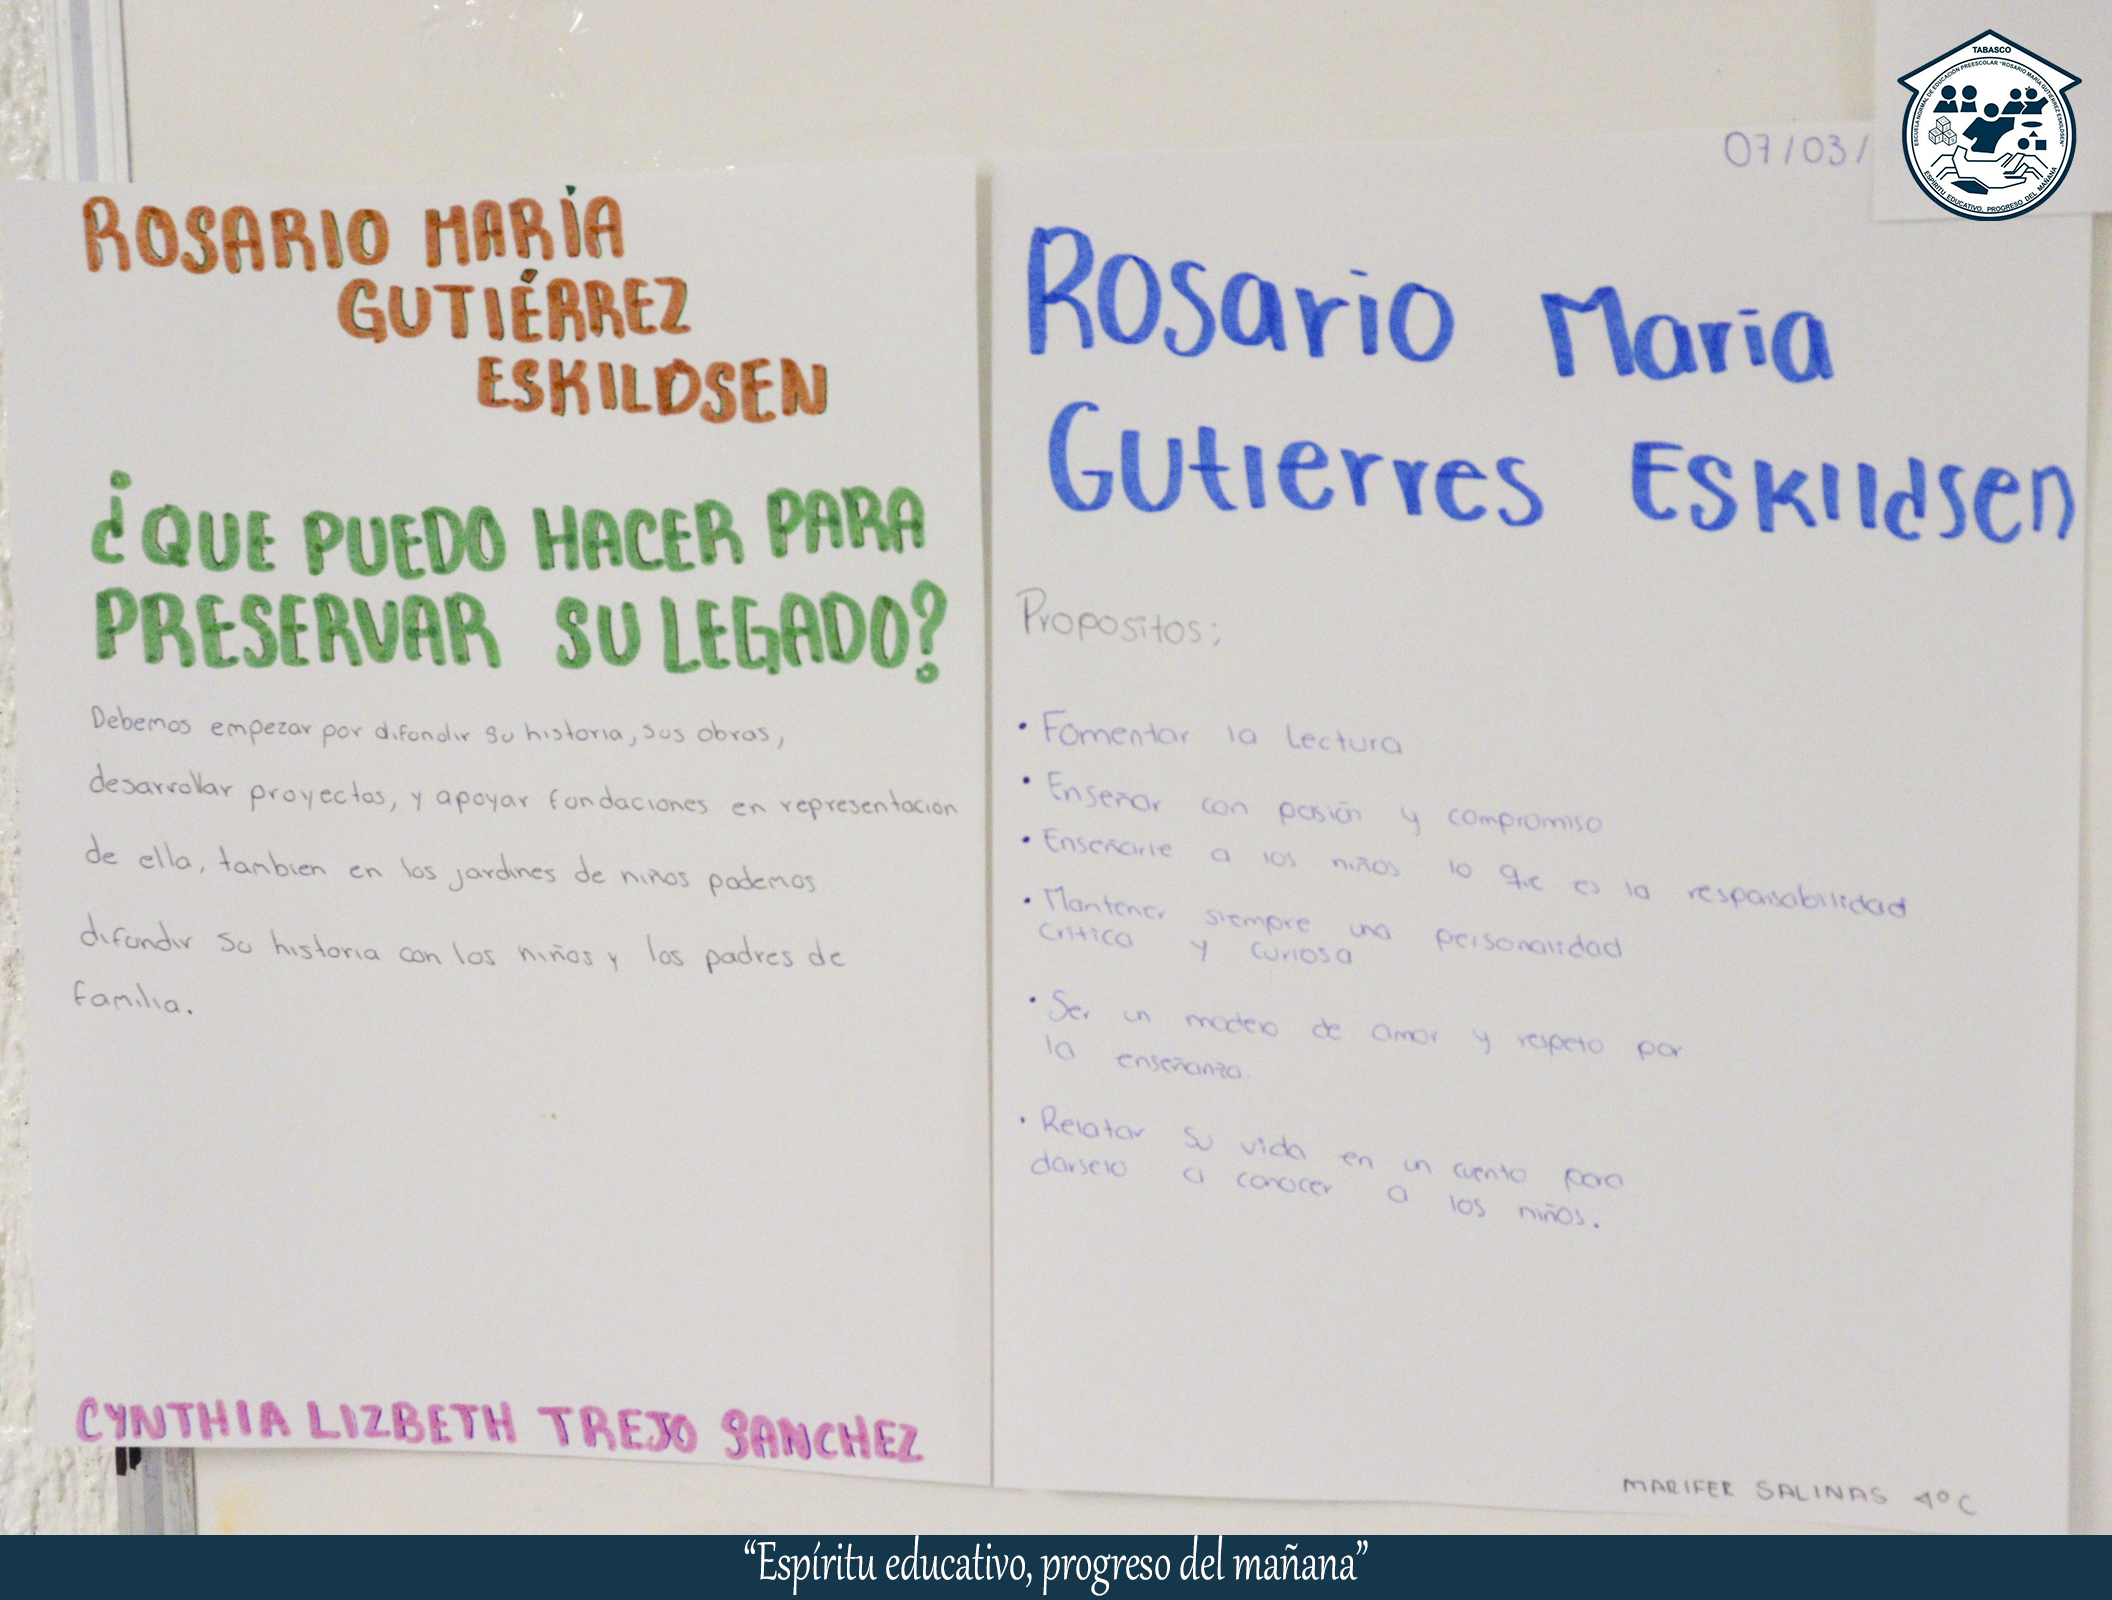 ROSARIO MARÍA
GUTIÉRREZ
ESKILDSEN
¿QUE PUEDO HACER PARA
PRESERVAR SU LEGADO?
Debemos empezar por difundir su historia, sus obras,
desarrollar proyectos, y apoyar fundaciones en representación
de ella, tambien en los jardines de niños podemos
difundir su historia con los niños y los padres de
familia.
CYNTHIA LIZBETH TREJO SANCHEZ
07/03/
Rosario Maria
Gutierres Eskildsen
Propositos:
• Fomentar la Lectura
• Enseñar con pasión y compromiso
• Enseñarle a los niños lo que es la responsabilidad
• Mantener siempre una personalidad
critica y curiosa
• Ser un modelo de amor y respeto por
la enseñanza.
• Relatar su vida en un cuento para
darselo a conocer a los niños.
MARIFER SALINAS 4º C
TABASCO
ESCUELA NORMAL DE EDUCACIÓN PREESCOLAR "ROSARIO MARÍA GUTIÉRREZ ESKILDSEN"
ESPÍRITU EDUCATIVO, PROGRESO DEL MAÑANA
“Espíritu educativo, progreso del mañana”